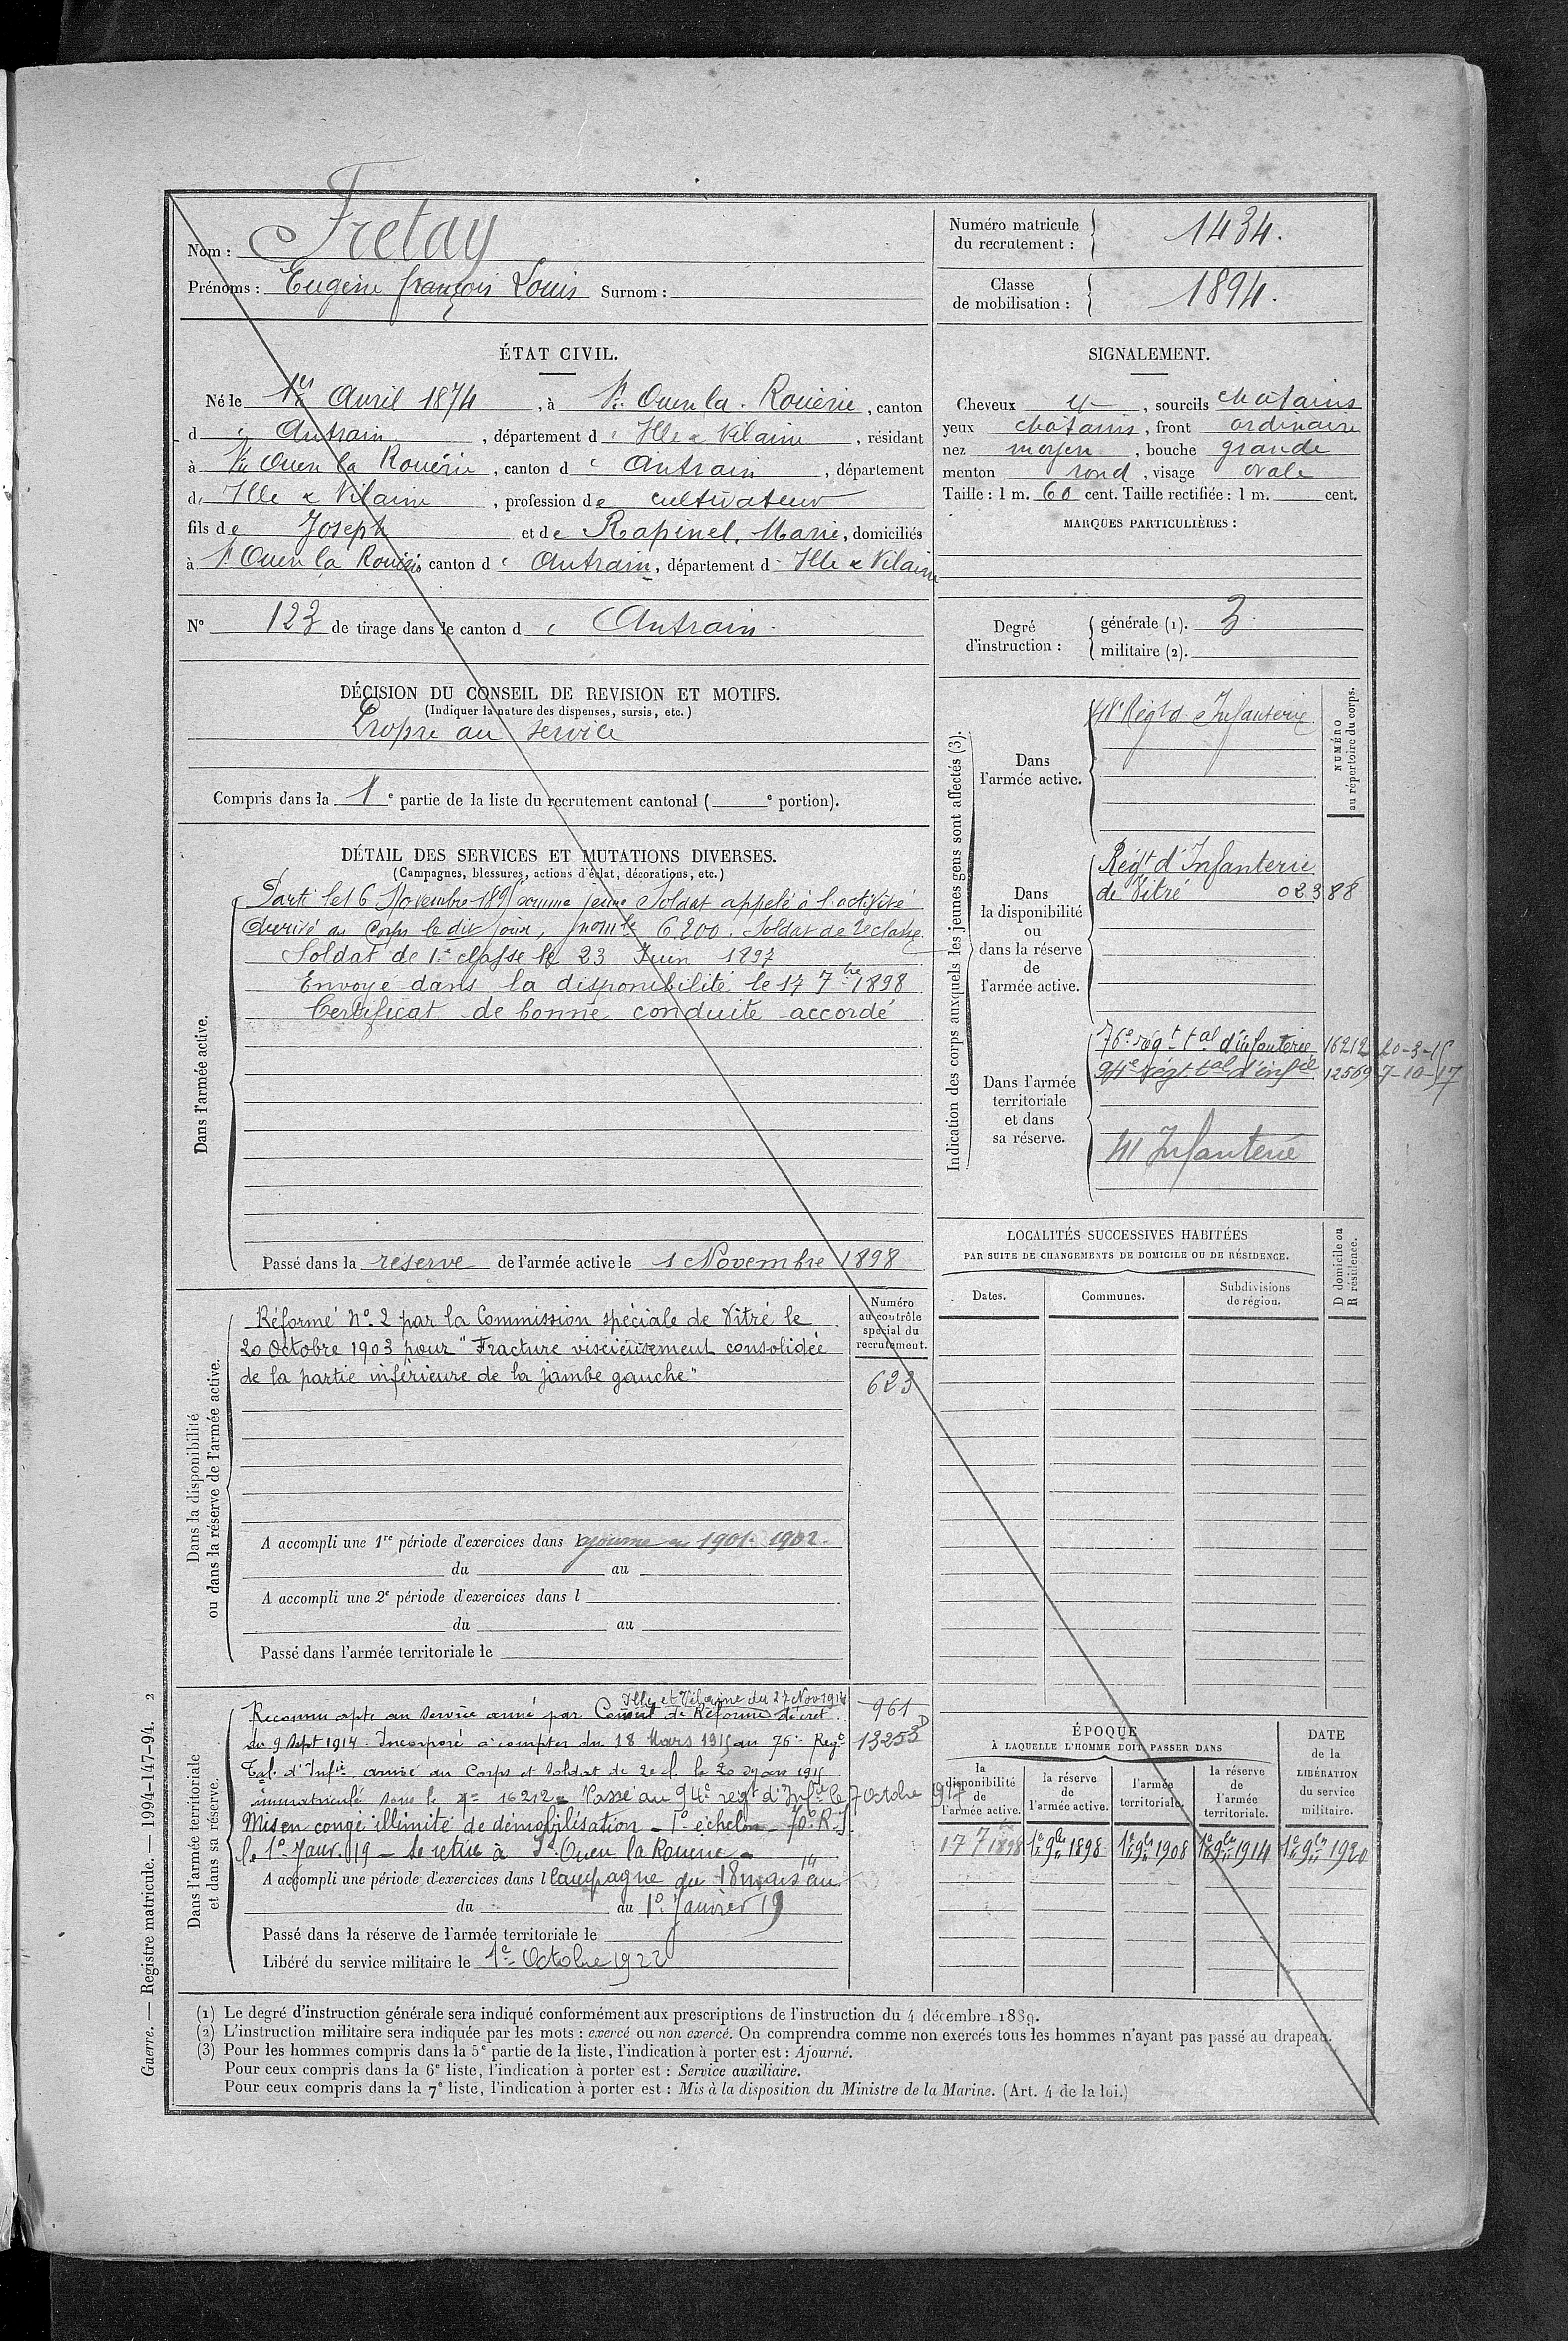 Nom : Fretay
Prénoms : Eugène françois Louis Surnom :
Numéro matricule du recrutement : 1434.
Classe de mobilisation : 1894.
ÉTAT CIVIL.
Né le 1er Avril 1874, à St Ouen la Rouërie, canton
d'Antrain, département d'Ille & Vilaine, résidant
à St Ouen la Rouërie, canton d'Antrain, département
d'Ille & Vilaine, profession de cultivateur
fils de Joseph et de Rapinel, Marie, domiciliés
à St Ouen la Rouërie canton d'Antrain, département d'Ille & Vilaine
N° 123 de tirage dans le canton d'Antrain.
SIGNALEMENT.
Cheveux et, sourcils chatains
yeux chatains, front ordinaire
nez moyen, bouche grande
menton rond, visage ovale
Taille : 1 m. 60 cent. Taille rectifiée : 1 m. cent.
MARQUES PARTICULIÈRES :
Degré d'instruction : générale (1). 3.
militaire (2).
DÉCISION DU CONSEIL DE REVISION ET MOTIFS.
(Indiquer la nature des dispenses, sursis, etc.)
Propre au service
Compris dans la 1e partie de la liste du recrutement cantonal ( e portion).
DÉTAIL DES SERVICES ET MUTATIONS DIVERSES.
(Campagnes, blessures, actions d'éclat, décorations, etc.)
Dans l'armée active.
Parti le 16 Novembre 1895 comme jeune Soldat appelé à l'activité
Arrivé au Corps le dit jour, n° mle 6200. Soldat de 2e classe
Soldat de 1e classe le 23 Juin 1897
Envoyé dans la disponibilité le 17 7bre 1898
Certificat de bonne conduite accordé
Passé dans la réserve de l'armée active le 1 Novembre 1898
Dans la disponibilité
ou dans la réserve de l'armée active.
Réformé N° 2 par la Commission spéciale de Vitré le
20 Octobre 1903 pour "Fracture viscieusement consolidée
de la partie inférieure de la jambe gauche"
Numéro
au contrôle
spécial du
recrutement.
623
A accompli une 1re période d'exercices dans l ajourné en 1901. 1902.
du au
A accompli une 2e période d'exercices dans l
du au
Passé dans l'armée territoriale le
Dans l'armée territoriale
et dans sa réserve.
Ille et Vilaine du 27 Nov 1914
Reconnu apte au service armé par Conseil de Réforme décret
du 9 Sept 1914. Incorporé à compter du 18 Mars 1915 au 76e Regt
Tal. d'Infie arrivé au Corps et soldat de 2e cl. le 20 mars 1915
immatriculé sous le n° 16212. Passé au 94e regt d'Infie le 7 Octobre 1917
Mis en congé illimité de démobilisation - 1o échelon - 70e R.I.
le 1o Janv. 19 - Se retire à St Ouen la Rouerie -
961
13253 D
A accompli une période d'exercices dans l Campagne du 18 mars au
du au 1o Janvier 19
Passé dans la réserve de l'armée territoriale le
Libéré du service militaire le 1e Octobre 1922
Indication des corps auxquels les jeunes gens sont affectés (3).
NUMÉRO
au répertoire du corps.
Dans
l'armée active.
48e Régt d'Infanterie
Dans
la disponibilité
ou
dans la réserve
de
l'armée active.
Régt d'Infanterie
de Vitré 02388
Dans l'armée
territoriale
et dans
sa réserve.
76e régt tal d'infanterie 16212 20-3-15
94e régt tal d'infie 12569 7-10-17
41 Infanterie
LOCALITÉS SUCCESSIVES HABITÉES
PAR SUITE DE CHANGEMENTS DE DOMICILE OU DE RÉSIDENCE.
D domicile ou
R résidence.
Dates. Communes. Subdivisions de région.
ÉPOQUE
À LAQUELLE L'HOMME DOIT PASSER DANS
DATE de la LIBÉRATION du service militaire.
la disponibilité de l'armée active.
la réserve de l'armée active.
l'armée territoriale.
la réserve de l'armée territoriale.
17 7bre 1898 1er 9bre 1898 1er 9bre 1908 1er 9bre 1914 1er 9bre 1920
(1) Le degré d'instruction générale sera indiqué conformément aux prescriptions de l'instruction du 4 décembre 1889.
(2) L'instruction militaire sera indiquée par les mots : exercé ou non exercé. On comprendra comme non exercés tous les hommes n'ayant pas passé au drapeau.
(3) Pour les hommes compris dans la 5e partie de la liste, l'indication à porter est : Ajourné.
Pour ceux compris dans la 6e liste, l'indication à porter est : Service auxiliaire.
Pour ceux compris dans la 7e liste, l'indication à porter est : Mis à la disposition du Ministre de la Marine. (Art. 4 de la loi.)
Guerre. — Registre matricule. — 1994-147-94. 2